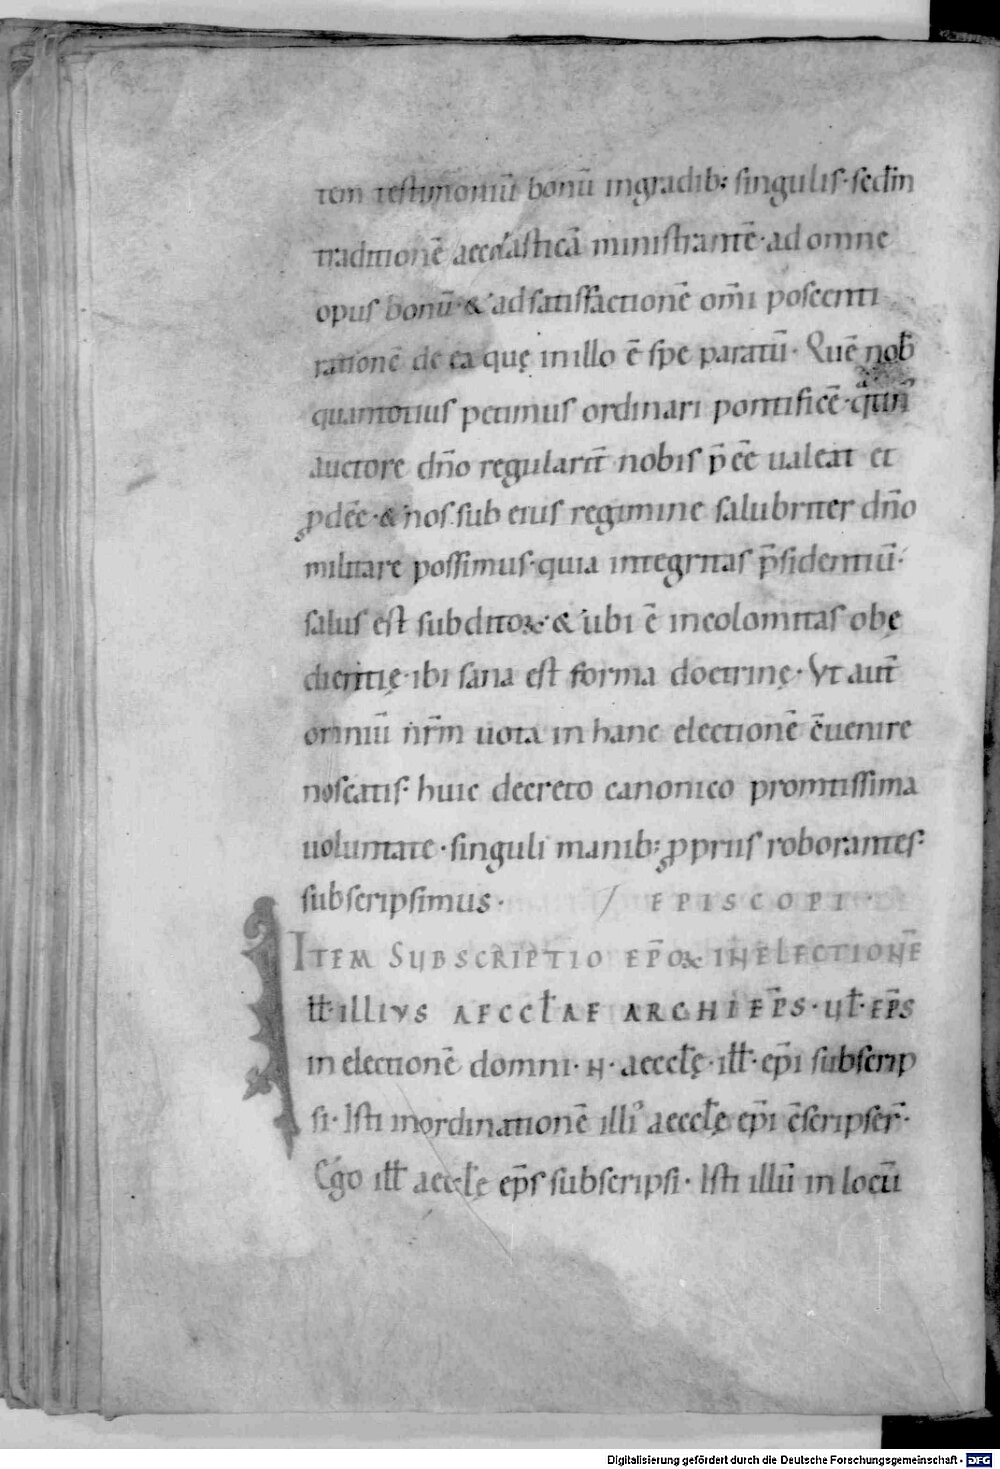 tem testimoniū bonū ingradib; singulis· sedm̄
traditionē aeccl̓asticā ministrantē· ad omne
opus bonū· & ad satisfactionē om̄i poscenti
rationē de ea quę in illo ē spe paratū· Quē nob̄
quantotius petimus ordinari pontificē· q̄tin̄
auctore dn̄o regularit̄ nobis p̄ eē ualeat et
ꝓdeē· & nos sub eius regimine salubriter dn̄o
militare possimus· quia integritas p̄sidentiū·
salus est subditoꝝ· & ubi ē incolomitas obę
dientię· ibi sana est forma doctrinę· Vt aut̄
omniū nr̄m uota in hanc electionē c̄uenire
noscatis· huic decreto canonico promtissima
uoluntate· singuli manib; ꝓpriis roborantes·
subscripsimus· / EPISCOPI·
ITEM SUBSCRIPTIO EP̄OꝜ IN ELECTIONĒ
ill̄· ILLIVS AECCL̄AE ARCHIEP̄S· ul̄· EP̄S
in electionē domni· N· aeccl̄ę· ill̄· ep̄i subscrip
si· Isti in ordinationē illi᾽ aeccl̄ę ep̄i c̄scripser̄·
Ego ill̄ aeccl̄ę ep̄s subscripsi· Isti illū in locū
Digitalisierung gefördert durch die Deutsche Forschungsgemeinschaft - DFG